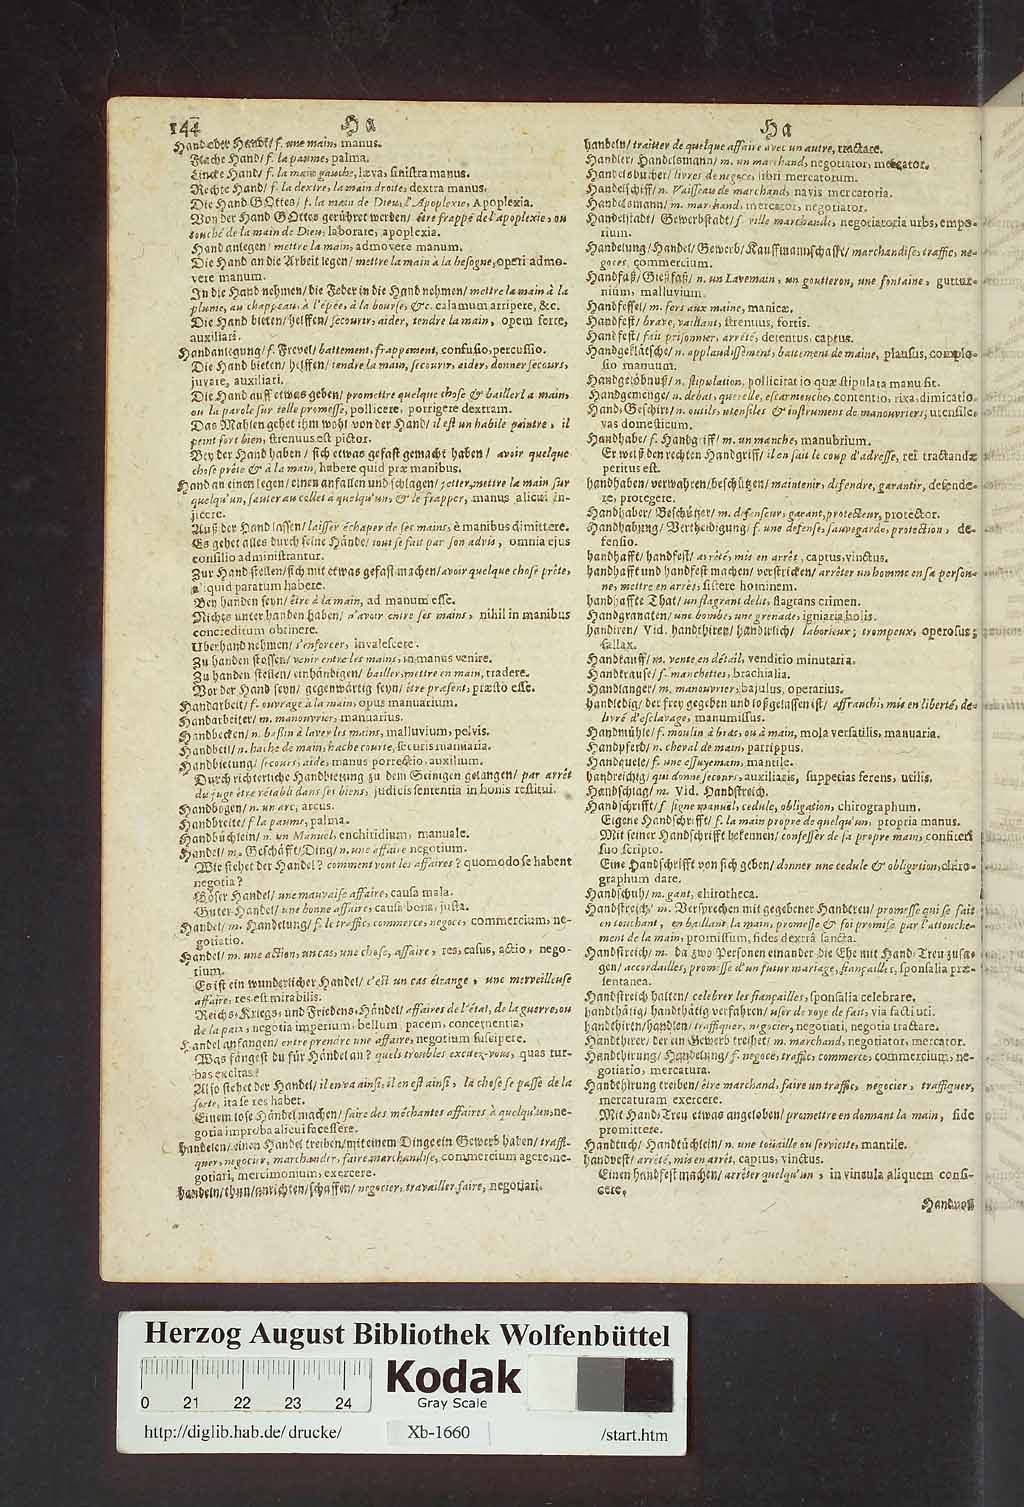 144 Ha
Hand oder Handt/ f. une main, manus.
Flache Hand/ f. la paume, palma.
Lincke Hand/ f. la main gauche, læva, sinistra manus.
Rechte Hand/ f. la dextre, la main droite, dextra manus.
Die Hand GOttes/ f. la main de Dieu, l'Apoplexie, Apoplexia.
Von der Hand GOttes gerühret werden/ être frappé de l'apoplexie, ou
touché de la main de Dieu, laborare, apoplexia.
Hand anlegen/ mettre la main, admovere manum.
Die Hand an die Arbeit legen/ mettre la main à la besogne, operi admo-
vere manum.
In die Hand nehmen/ die Feder in die Hand nehmen/ mettre la main à la
plume, au chappeau, à l'épée, à la bourse, &c. calamum arripere, &c.
Die Hand bieten/ helffen/ secourir, aider, tendre la main, opem ferre,
auxiliari.
Handanlegung/ f. Frevel/ battement, frappement, confusio, percussio.
Die Hand bieten/ helffen/ tendre la main, secourir, aider, donner secours,
juvare, auxiliari.
Die Hand auff etwas geben/ promettre quelque chose & bailler la main,
ou la parole sur telle promesse, pollicere, porrigere dextram.
Das Mahlen gehet ihm wohl von der Hand/ il est un habile peintre, il
peint fort bien, strenuus est pictor.
Bey der Hand haben/ sich etwas gefast gemacht haben/ avoir quelque
chose prête & à la main, habere quid præ manibus.
Hand an einen legen/ einen anfallen und schlagen/ jetter, mettre la main sur
quelqu'un, sauter au collet à quelqu'un, & le frapper, manus alicui in-
jicere.
Auß der Hand lassen/ laisser échaper de ses mains, è manibus dimittere.
Es gehet alles durch seine Hände/ tout se fait par son advis, omnia ejus
consilio administrantur.
Zur Hand stellen/ sich mit etwas gefast machen/ avoir quelque chose prête,
aliquid paratum habere.
Bey handen seyn/ être à la main, ad manum esse.
Nichts unter handen haben/ n'avoir entre ses mains, nihil in manibus
concreditum obtinere.
Uberhand nehmen/ s'enforcer, invalescere.
Zu handen stossen/ venir entre les mains, in manus venire.
Zu handen stellen/ einhändigen/ bailler, mettre en main, tradere.
Vor der Hand seyn/ gegenwärtig seyn/ être présent, præsto esse.
Handarbeit/ f. ouvrage à la main, opus manuarium.
Handarbeiter/ m. manouvrier, manuarius.
Handbecken/ n. bassin à laver les mains, malluvium, pelvis.
Handbeil/ n. hache de main, hache courte, securis manuaria.
Handbietung/ secours, aide, manus porrectio, auxilium.
Durch richterliche Handbietung zu dem Seinigen gelangen/ par arrêt
du juge être rétabli dans ses biens, judicis sententia in bonis restitui.
Handbogen/ n. un arc, arcus.
Handbreite/ f la paume, palma.
Handbüchlein/ n. un Manuel, enchiridium, manuale.
Handel/ m. Geschäfft/ Ding/ n. une affaire negotium.
Wie stehet der Handel? comment vont les affaires? quomodo se habent
negotia?
Böser Handel/ une mauvaise affaire, causa mala.
Guter Handel/ une bonne affaire, causa bona, justa.
Handel/ m. Handelung/ f. le traffic, commerce, negoce, commercium, ne-
gotiatio.
Handel/ m. une action, un cas, une chose, affaire, res, casus, actio, nego-
tium.
Es ist ein wunderlicher Handel/ c'est un cas étrange, une merveilleuse
affaire, res est mirabilis.
Reichs, Kriegs, und Friedens, Händel/ affaires de l'état, de la guerre, ou
de la paix, negotia imperium, bellum, pacem, concernentia,
Handel anfangen/ entreprendre une affaire, negotium suscipere.
Was fängest du für Händel an? quels troubles excitez-vous, quas tur-
bas excitas?
Also stehet der Handel/ il en va ainsi, il en est ainsi, la chose se passe de la
sorte, ita se res habet.
Einem lose Händel machen/ faire des méchantes affaires à quelqu'un, ne-
gotia improba alicui facessere.
handelen/ einen Handel treiben/ mit einem Dinge ein Gewerb haben/ traffi-
quer, negocier, marchander, faire marchandise, commercium agere, ne-
gotiari, mercimonium, exercere.
handeln/ thun/ anrichten/ schaffen/ negocier, travailler, faire, negotiari.
Ha
handeln/ traitter de quelque affaire avec un autre, tractare.
Handler/ Handelsmann/ m. un marchand, negotiator, mercator.
Handelsbücher/ livres de negoce, libri mercatorum.
Handelschiff/ n. Vaisseau de marchand, navis mercatoria.
Handelsmann/ m. marchand, mercator, negotiator.
Handelstadt/ Gewerbstadt/ f. ville marchande, negotiatoria urbs, empo-
rium.
Handelung/ Handel/ Gewerb/ Kauffmannschafft/ marchandise, traffic, ne-
goces, commercium.
Handfaß/ Gießfaß/ n. un Lavemain, un goutteron, une fontaine, guttur-
nium, malluvium.
Handfessel/ m. fers aux mains, manicæ.
Handfest/ brave, vaillant, strenuus, fortis.
Handfest/ fait prisonnier, arrêté, detentus, captus.
Handgeklätsche/ n. applaudissement, battement de mains, plausus, complo-
sio manuum.
Handgelöbnuß/ n. stipulation, pollicitatio quæ stipulata manu fit.
Handgemenge/ n. debat, querelle, escarmouche, contentio, rixa, dimicatio.
Hand, Geschirr/ n. outils, utensiles & instrument de manouvriers, utensile,
vas domesticum.
Handhabe/ f. Handgriff/ m. un manche, manubrium.
Er weiß den rechten Handgriff/ il en sait le coup d'adresse, rei tractandæ
peritus est.
handhaben/ verwahren/ beschützen/ maintenir, defendre, garantir, defende-
re, protegere.
Handhaber/ Beschützer/ m. defenseur, garant, protecteur, protector.
Handhabung/ Vertheidigung/ f. une defense, sauvegarde, protection, de-
fensio.
handhafft/ handfest/ arrêté, mis en arrêt, captus, vinctus.
handhafft und handfest machen/ verstricken/ arrêter un homme en sa person-
ne, mettre en arrêt, sistere hominem.
handhaffte That/ un flagrant delit, flagrans crimen.
Handgranaten/ une bombe, une grenade, igniaria holis.
handiren/ Vid. handthiren/ händtlich/ laborieux; trompeux, operosus;
fallax.
Handkauff/ m. vente en détail, venditio minutaria.
Handkrause/ f. manchettes, brachialia.
Handlanger/ m. manouvrier, bajulus, operarius.
handledig/ der frey gegeben und loßgelassen ist/ affranchi, mis en liberté, de-
livré d'esclavage, manumissus.
Handmühle/ f. moulin à bras, ou à main, mola versatilis, manuaria.
Handpferd/ n. cheval de main, parippus.
Handquele/ f. une essuyemain, mantile.
handreichig/ qui donne secours, auxiliaris, suppetias ferens, utilis.
Handschlag/ m. Vid. Handstreich.
Handschrifft/ f signe manuel, cedule, obligation, chirographum.
Eigene Handschrifft/ f. la main propre de quelqu'un, propria manus.
Mit seiner Handschrifft bekennen/ confesser de sa propre main, confiteri
suo scripto.
Eine Handschrifft von sich geben/ donner une cedule & obligation, chiro-
graphum dare.
Handschuh/ m. gant, chirotheca.
Handstreich/ m. Versprechen mit gegebener Handtreu/ promesse qui se fait
en touchant, en baillant la main, promesse & foi promise par l'attouche-
ment de la main, promissum, fides dextrâ sancta.
Handstreich/ m. da zwo Personen einander die Ehe mit Hand, Treu zusa-
gen/ accordailles, promesse d'un futur mariage, fiançailles, sponsalia præ-
sentanea.
Handstreich halten/ celebrer les fiançailles, sponsalia celebrare.
handthätig/ handthätig verfahren/ user de voye de fait, via facti uti.
handthiren/ handlen/ traffiquer, negocier, negotiari, negotia tractare.
Handthirer/ der ein Gewerb treibet/ m. marchand, negotiator, mercator.
Handthirung/ Handelung/ f. negoce, traffic, commerce, commercium, ne-
gotiatio, mercatura.
Handthirung treiben/ être marchand, faire un traffic, negocier, traffiquer,
mercaturam exercere.
Mit Hand, Treu etwas angeloben/ promettre en donnant la main, fide
promittere.
Handtuch/ Handtüchlein/ n. une toüaille ou serviette, mantile.
handvest/ arrêté, mis en arrêt, captus, vinctus.
Einen handfest machen/ arrêter quelqu'un, in vincula aliquem consi-
cere.
Handvoll
Herzog August Bibliothek Wolfenbüttel
0 21 22 23 24
Kodak
Gray Scale
http://diglib.hab.de/drucke/ Xb-1660 /start.htm